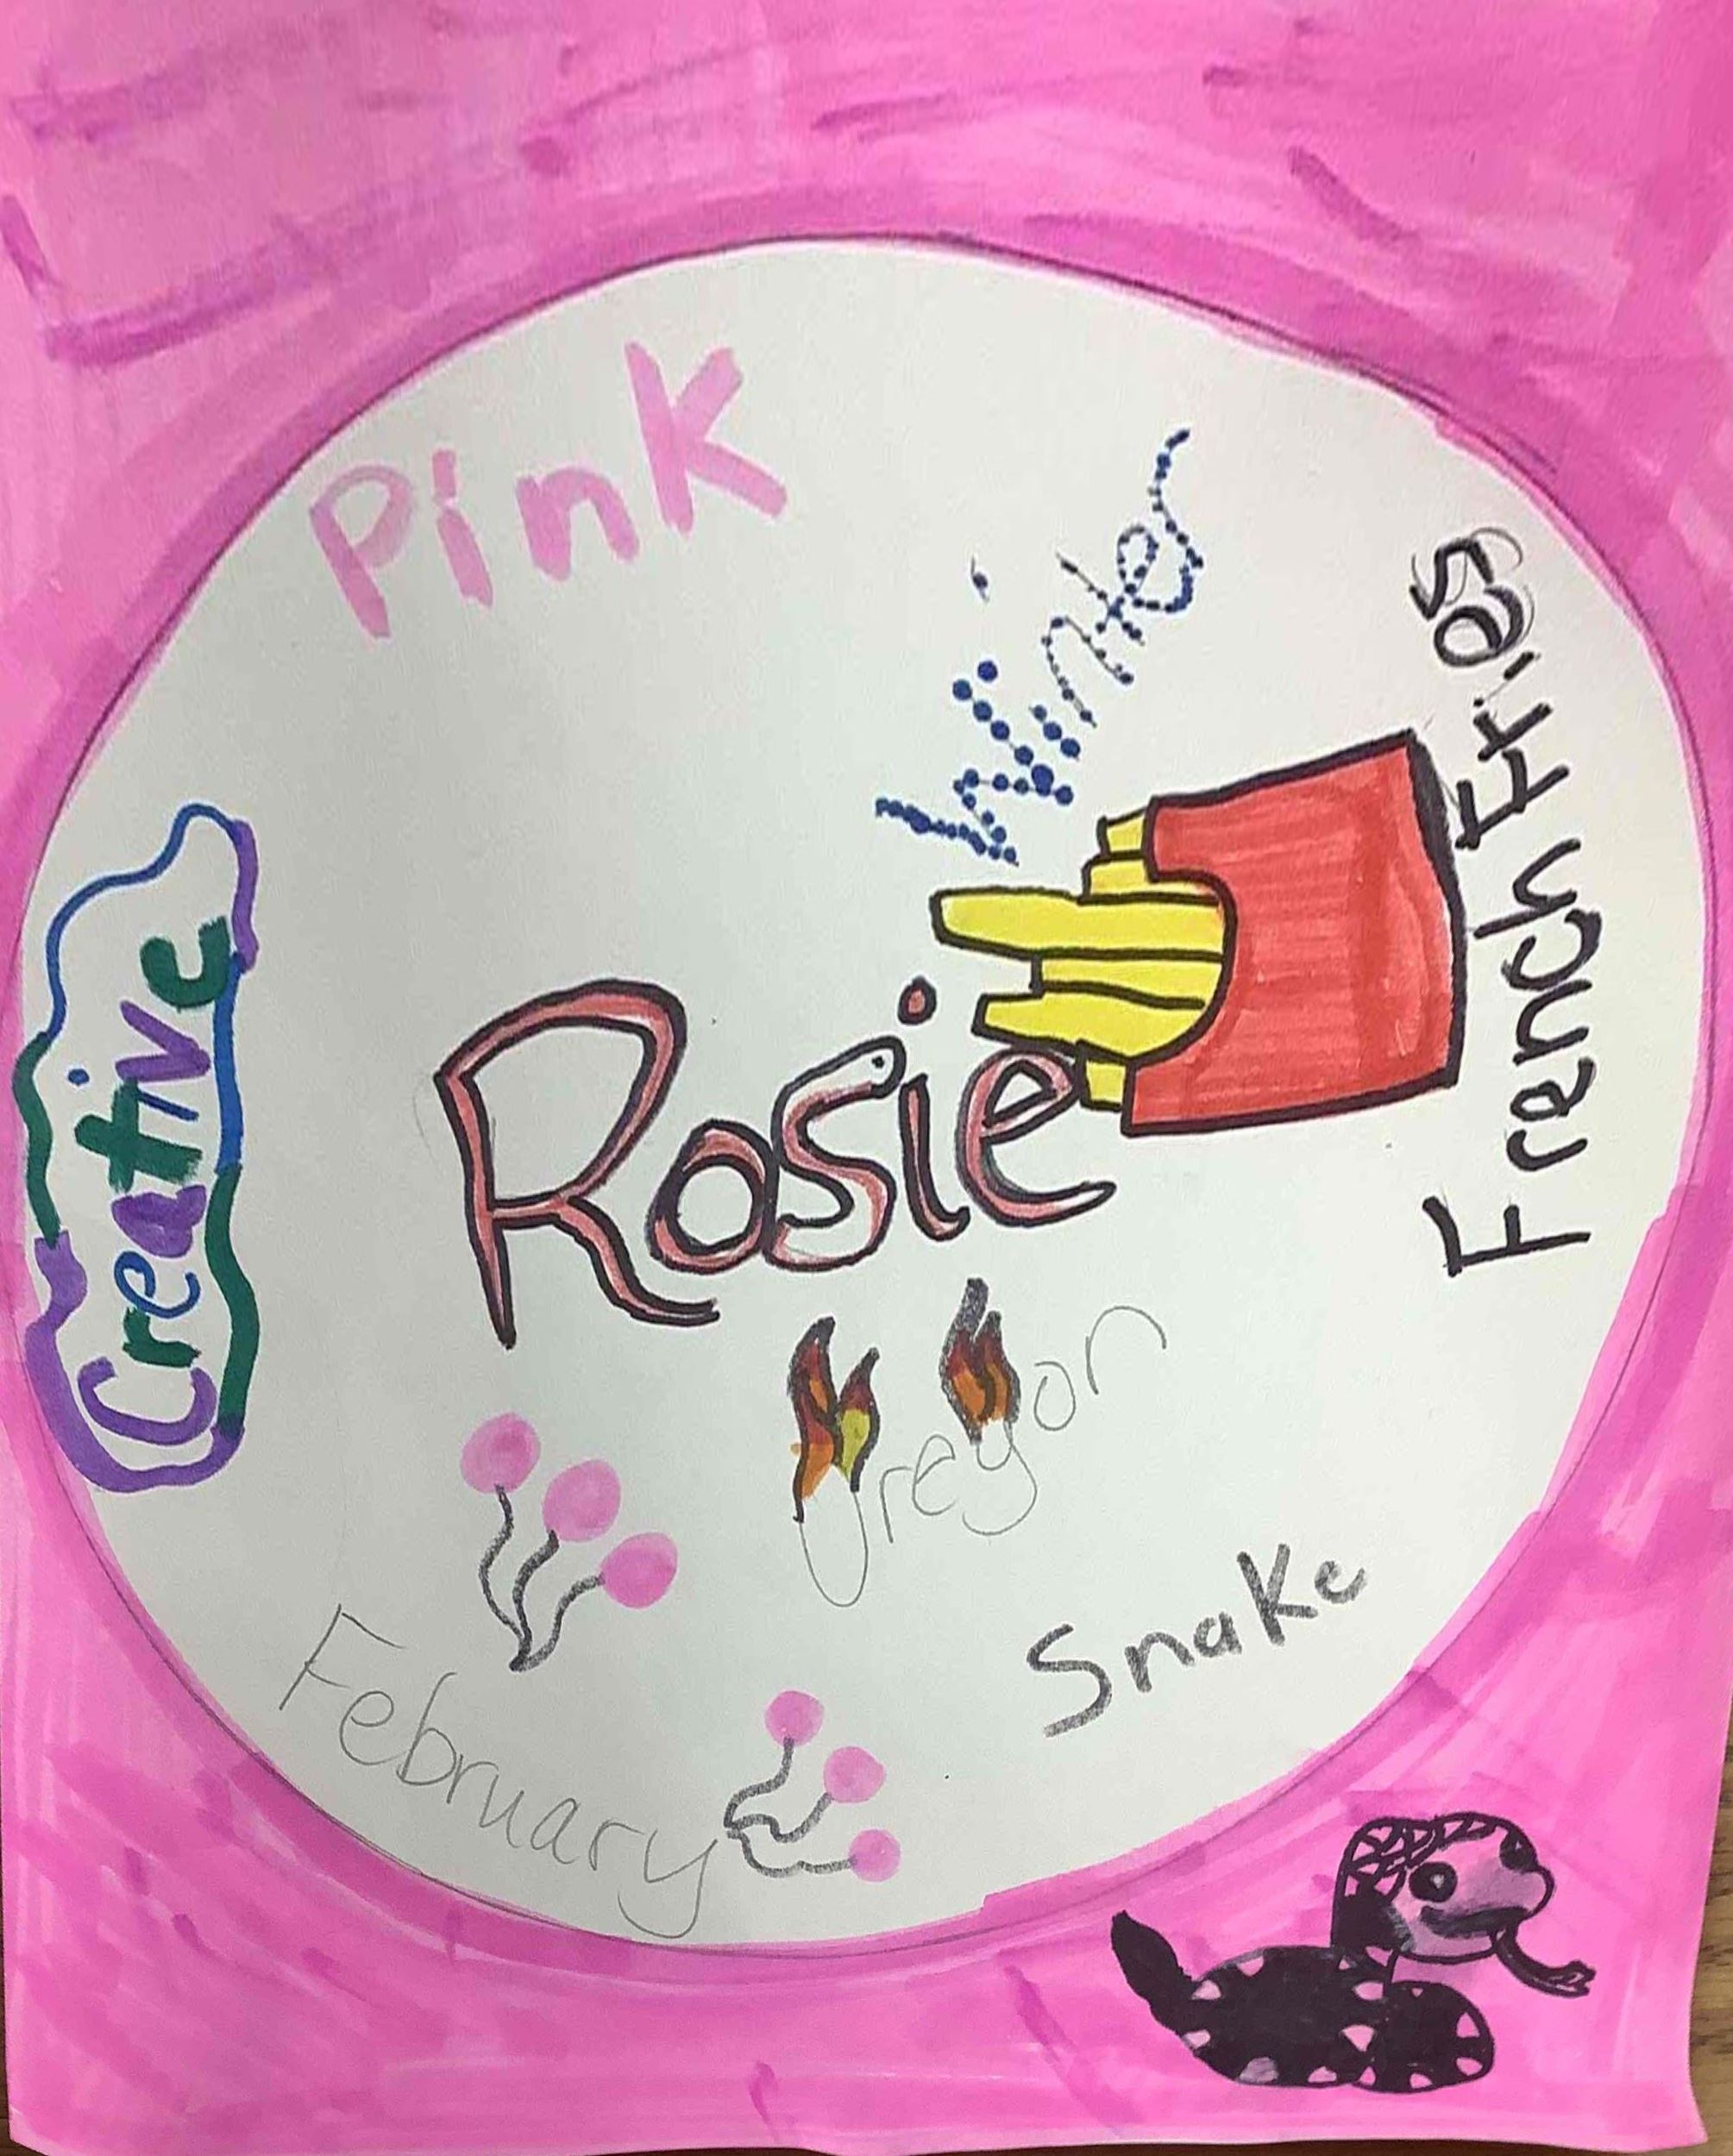 Pink
Winter
French Fries
Creative
Rosie
Oregon
Snake
February